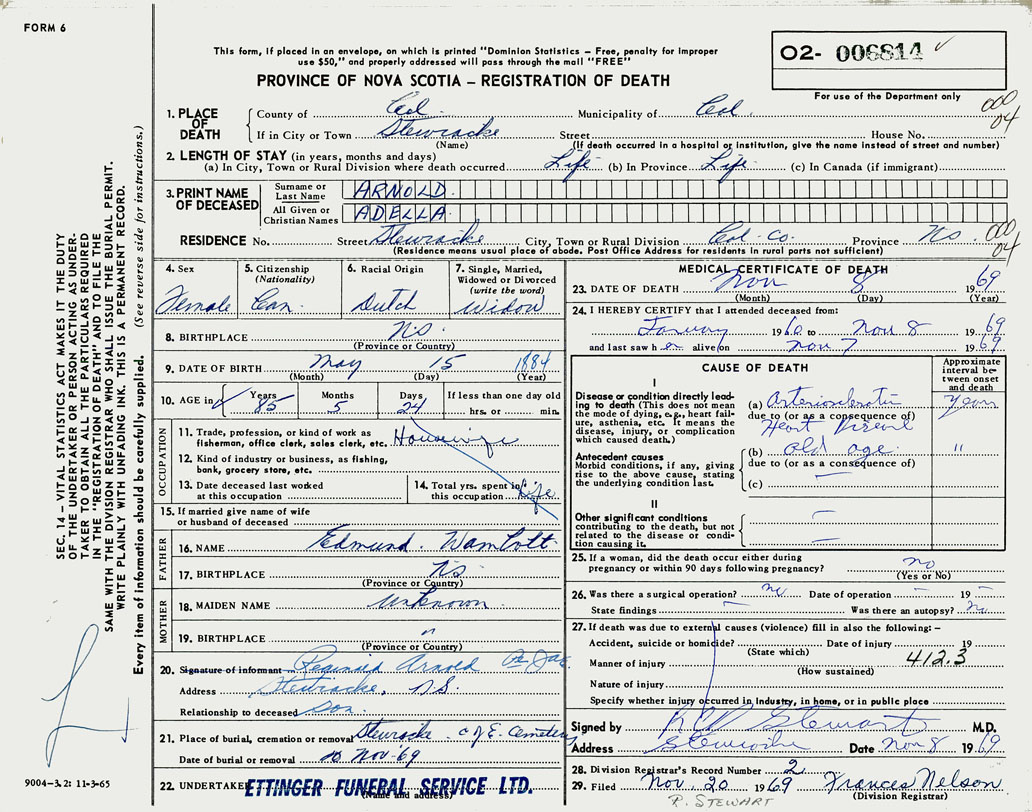 FORM 6
This form, if placed in an envelope, on which is printed "Dominion Statistics – Free, penalty for improper
use $50," and properly addressed will pass through the mail "FREE"
PROVINCE OF NOVA SCOTIA – REGISTRATION OF DEATH
O2- 006814
For use of the Department only
000
04
1. PLACE OF DEATH County of Col. Municipality of Col.
If in City or Town Stewiacke Street House No.
(Name) (If death occurred in a hospital or institution, give the name instead of street and number)
2. LENGTH OF STAY (in years, months and days)
(a) In City, Town or Rural Division where death occurred Life (b) In Province Life (c) In Canada (if immigrant)
3. PRINT NAME OF DECEASED Surname or Last Name ARNOLD
All Given or Christian Names ADELLA
RESIDENCE No. Street Stewiacke City, Town or Rural Division Col. Co. Province N.S. 000
04
(Residence means usual place of abode. Post Office Address for residents in rural parts not sufficient)
4. Sex Female
5. Citizenship (Nationality) Can.
6. Racial Origin Dutch
7. Single, Married, Widowed or Divorced (write the word) Widow
8. BIRTHPLACE N.S.
(Province or Country)
9. DATE OF BIRTH May 15 1884
(Month) (Day) (Year)
10. AGE in Years 85 Months 5 Days 24 If less than one day old hrs. or min.
OCCUPATION
11. Trade, profession, or kind of work as fisherman, office clerk, sales clerk, etc. Housewife
12. Kind of industry or business, as fishing, bank, grocery store, etc.
13. Date deceased last worked at this occupation
14. Total yrs. spent in this occupation Life
15. If married give name of wife or husband of deceased
FATHER
16. NAME Edmund Wambolt
17. BIRTHPLACE N.S.
(Province or Country)
MOTHER
18. MAIDEN NAME Unknown
19. BIRTHPLACE "
(Province or Country)
20. Signature of informant Reginald Arnold
Address Stewiacke, N.S.
Relationship to deceased Son
21. Place of burial, cremation or removal Stewiacke C of E. Cemetery
Date of burial or removal 10 Nov '69
22. UNDERTAKER ETTINGER FUNERAL SERVICE LTD.
(Name and address)
MEDICAL CERTIFICATE OF DEATH
23. DATE OF DEATH Nov 8 69
(Month) (Day) (Year)
24. I HEREBY CERTIFY that I attended deceased from:
January 1960 to Nov 8 1969
and last saw her alive on Nov 7 1969
CAUSE OF DEATH
Approximate interval between onset and death
I
Disease or condition directly leading to death (This does not mean the mode of dying, e.g., heart failure, asthenia, etc. It means the disease, injury, or complication which caused death.)
(a) Arteriosclerotic years
due to (or as a consequence of)
Heart Disease
Antecedent causes
Morbid conditions, if any, giving rise to the above cause, stating the underlying condition last.
(b) old age "
due to (or as a consequence of)
(c)
II
Other significant conditions
contributing to the death, but not related to the disease or condition causing it.
25. If a woman, did the death occur either during pregnancy or within 90 days following pregnancy? no
(Yes or No)
26. Was there a surgical operation? no Date of operation – 19 –
State findings – Was there an autopsy? no
27. If death was due to external causes (violence) fill in also the following: –
Accident, suicide or homicide? Date of injury 19
(State which)
Manner of injury 412.3
(How sustained)
Nature of injury
Specify whether injury occurred in Industry, in home, or in public place
Signed by Stewart M.D.
Address Stewiacke Date Nov 8 1969
28. Division Registrar's Record Number 2
29. Filed Nov. 20 1969 Frances Nelson
(Division Registrar)
R. STEWART
SEC. 14 – VITAL STATISTICS ACT MAKES IT THE DUTY
OF THE UNDERTAKER OR PERSON ACTING AS UNDER-
TAKER TO OBTAIN ALL THE PARTICULARS REQUIRED
IN THE "REGISTRATION OF DEATH" AND TO FILE THE
SAME WITH THE DIVISION REGISTRAR WHO SHALL ISSUE THE BURIAL PERMIT.
WRITE PLAINLY WITH UNFADING INK. THIS IS A PERMANENT RECORD.
Every item of information should be carefully supplied. (See reverse side for instructions.)
9004-3.2: 11-3-65